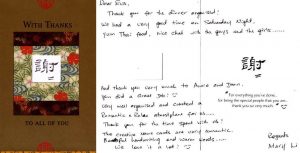 WITH THANKS
謝
TO ALL OF YOU
Dear Eva,
Thank you for the dinner organised!
We had a very good time on Saturday Night,
Yum Thai food, nice chat with the guys and the girls......
And thank you very much to Aura and
you did a Great Job!
Very well organised and created a
Romantic & Relax atmosphere for us....
Thank you for the time spent with us!
The creative were very romantic.
Beautiful handwriting and warm words....
We love it a lot!
謝
For everything you've done,
for being the special people that you are...
thank you so very much
Regards